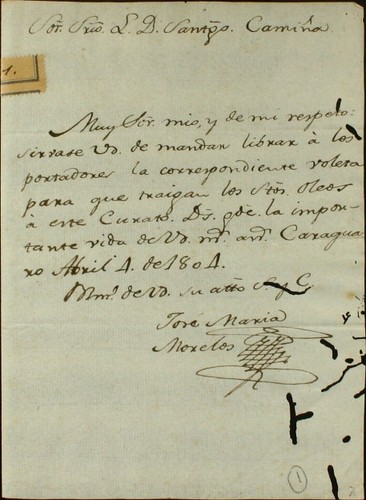 Sor. Srio. L. D. Santgo. Camiña.
1.
Muy Sor. mio, y de mi respeto:
sirvase Vd. de mandar librar à los
portadores la correspondiente voleta
para que traigan los Stos. Oleos
à este Curato. Ds. gde. la impor-
tante vida de Vd. ms. as. Caraqua-
ro Abril 4. de 1804.
B. lm. de Vd. su atto. S. y C.
José Maria
Morelos
1